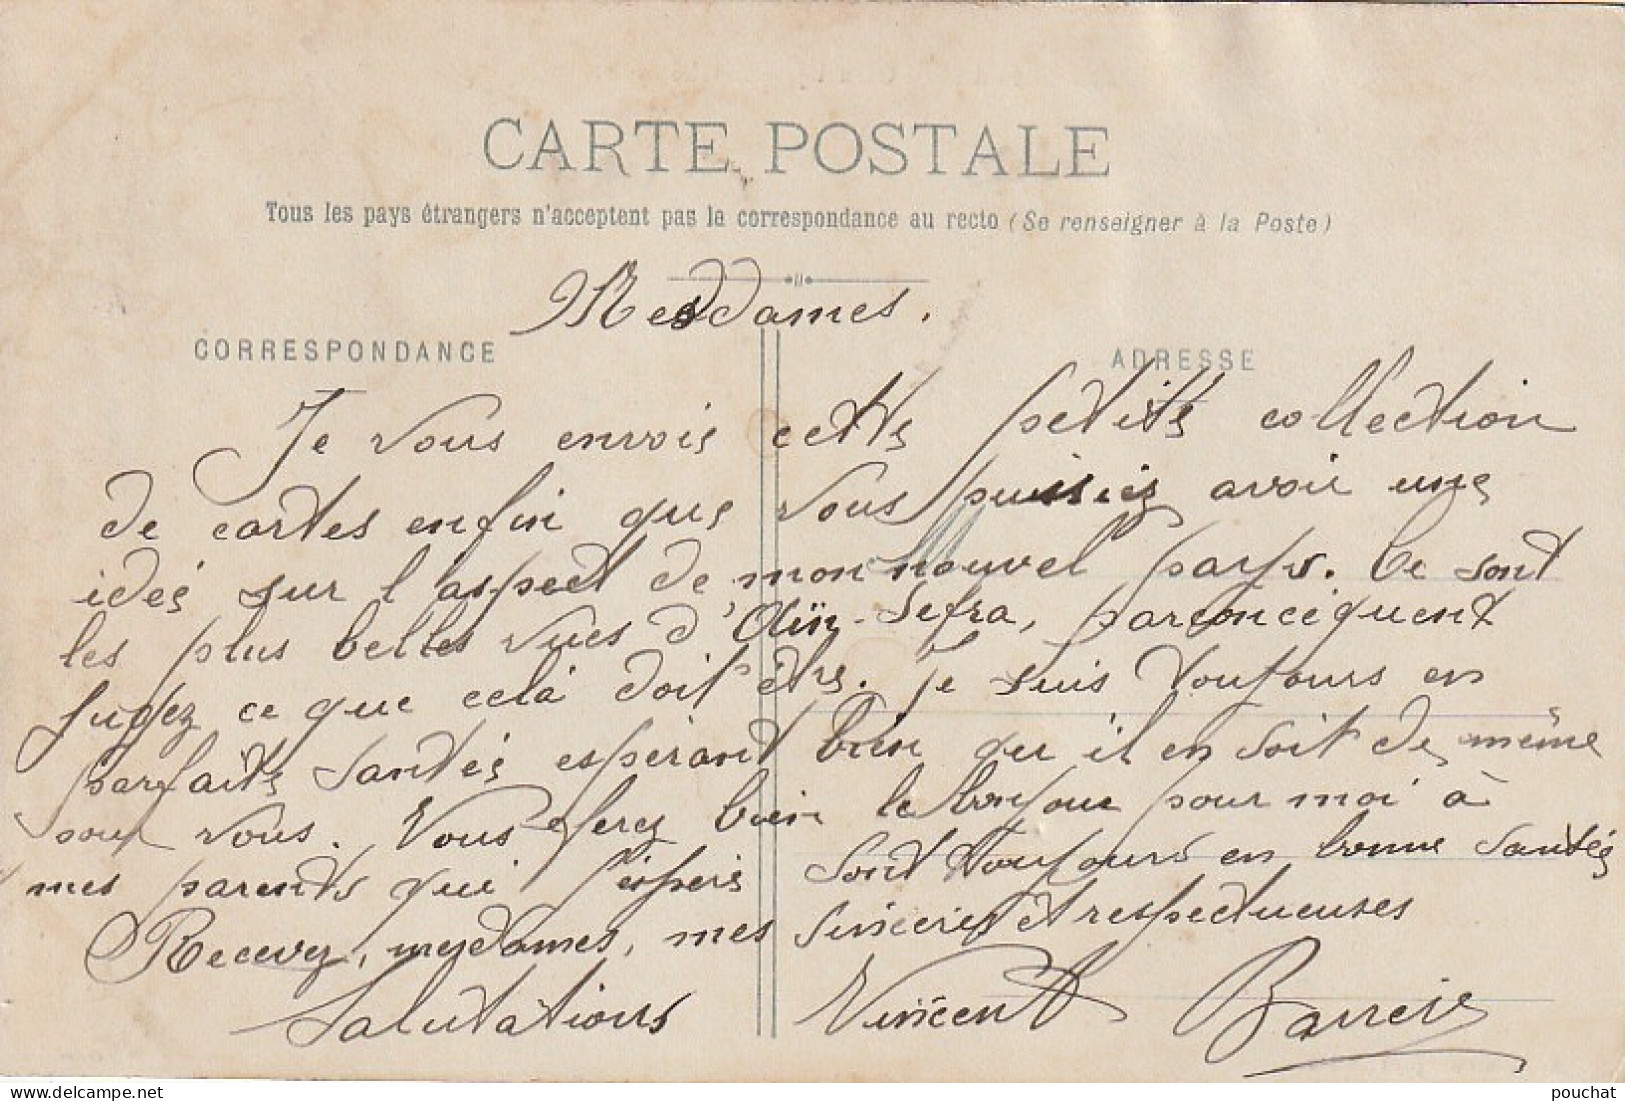 CARTE POSTALE
Tous les pays étrangers n'acceptent pas la correspondance au recto (Se renseigner à la Poste)
Mesdames.
CORRESPONDANCE
ADRESSE
Je vous envois cette petite collection
de cartes enfin que vous puissiez avoir une
idée sur l'aspect de mon nouvel pays. Ce sont
les plus belles vues d'Aïn-Sefra, parconcéquent
jugez ce que celà doit être. Je suis toujours en
parfaite santée espérant bien qu'il en soit de même
pour vous. Vous ferez bien le bonjour pour moi à
mes parents qui j'espère sont toujours en bonne santée
Recevez, mesdames, mes sincères et respectueuses
Salutations
Vincent
pouchat